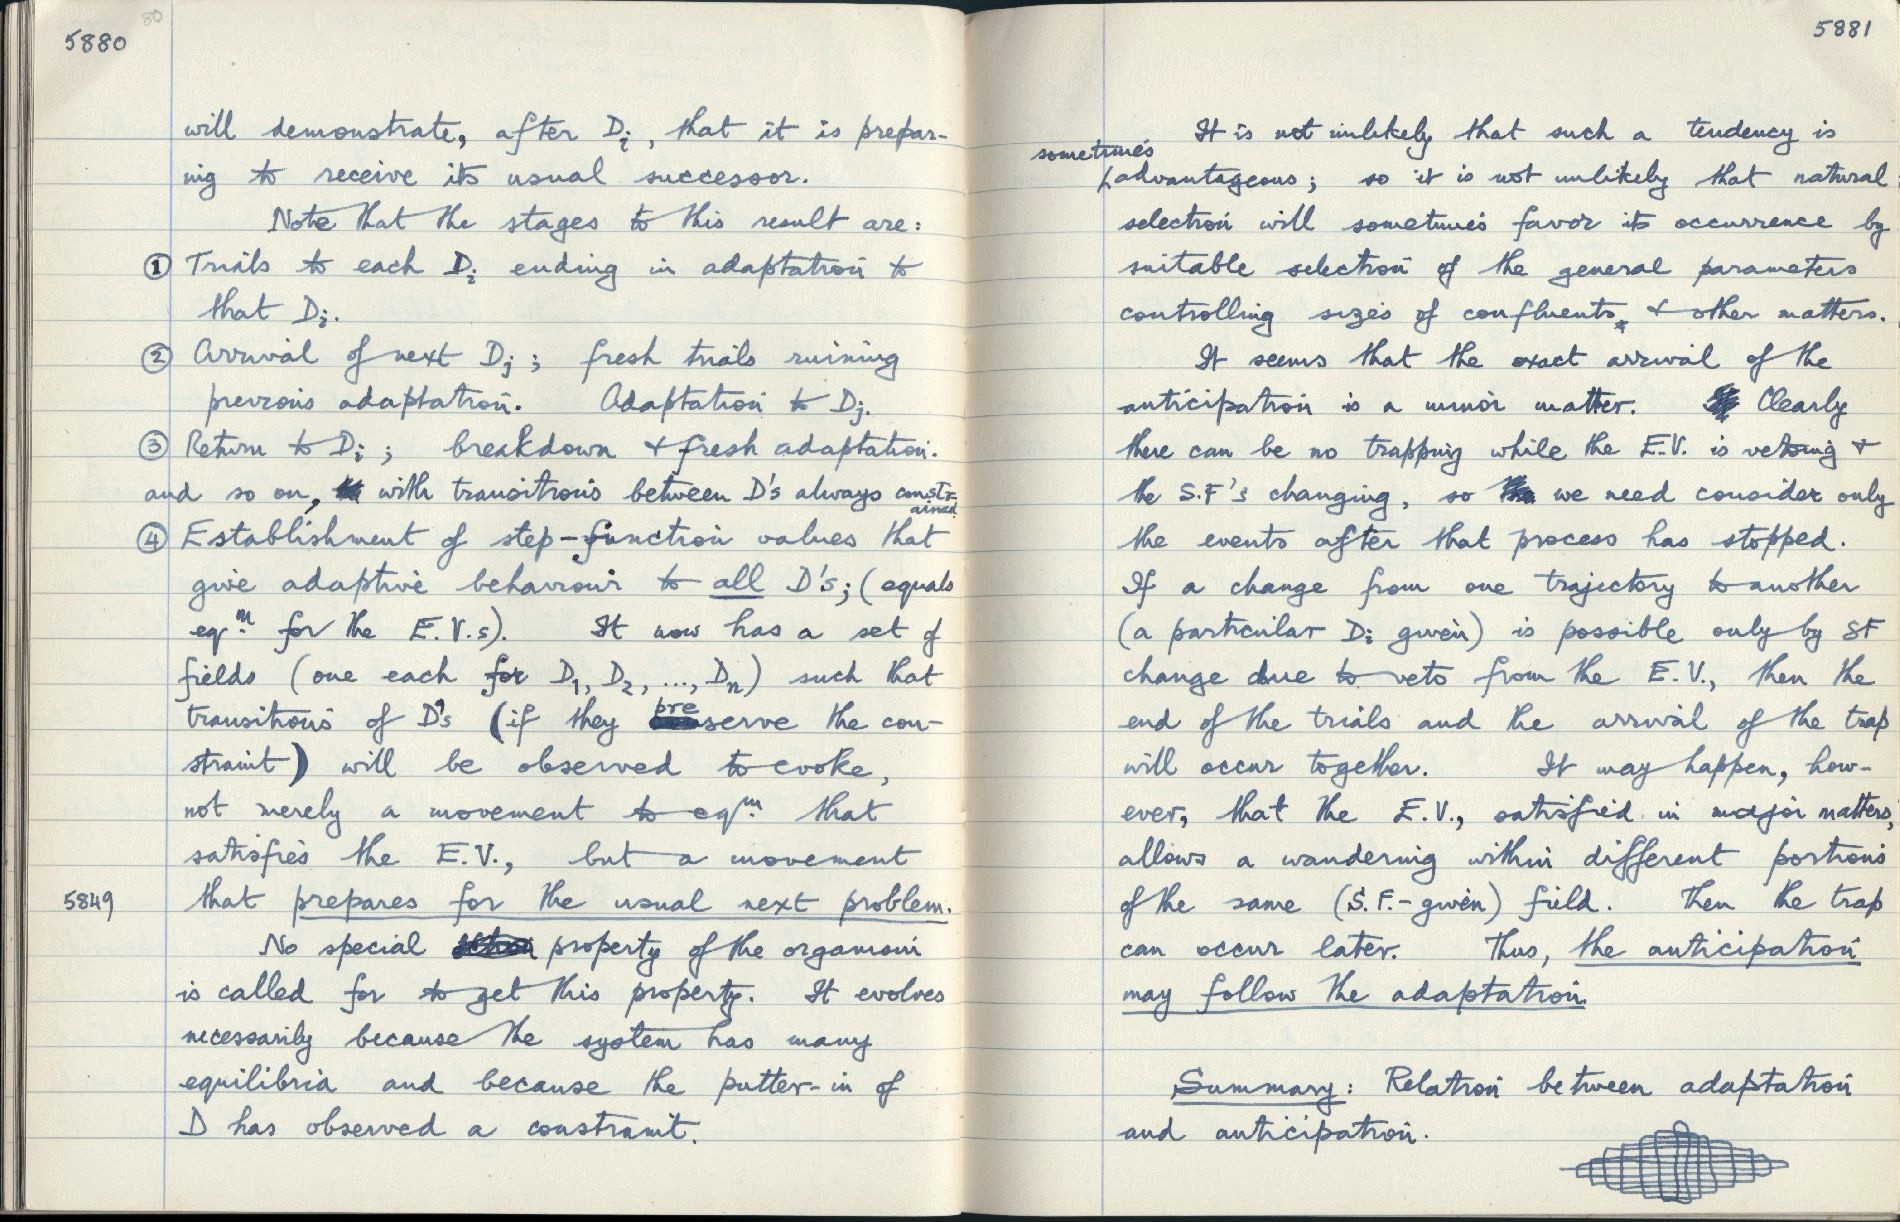 5880
80
will demonstrate, after Di, that it is prepar-
ing to receive its usual successor.
Note that the stages to this result are:
① Trials to each Di ending in adaptation to
that Di.
② Arrival of next Dj; fresh trials ruining
previous adaptation. Adaptation to Dj.
③ Return to Di; breakdown & fresh adaptation.
and so on, with transitions between D's always constr-
ained.
④ Establishment of step-function values that
give adaptive behaviour to all D's; (equals
eqm. for the E.V.s). It now has a set of
fields (one each for D1, D2, ..., Dn) such that
transitions of D's (if they preserve the con-
straint) will be observed to evoke,
not merely a movement to eqm. that
satisfies the E.V., but a movement
5849 that prepares for the usual next problem.
No special property of the organism
is called for to get this property. It evolves
necessarily because the system has many
equilibria and because the putter-in of
D has observed a constraint.
5881
It is not unlikely that such a tendency is
sometimes
advantageous; so it is not unlikely that natural
selection will sometimes favor its occurrence by
suitable selection of the general parameters
controlling sizes of confluents, & other matters.
It seems that the exact arrival of the
anticipation is a minor matter. Clearly
there can be no trapping while the E.V. is vetoing &
the S.F's changing, so we need consider only
the events after that process has stopped.
If a change from one trajectory to another
(a particular Di given) is possible only by SF
change due to veto from the E.V., then the
end of the trials and the arrival of the trap
will occur together. It may happen, how-
ever, that the E.V., satisfied in major matters,
allows a wandering within different portions
of the same (S.F.-given) field. Then the trap
can occur later. Thus, the anticipation
may follow the adaptation.
Summary: Relation between adaptation
and anticipation.